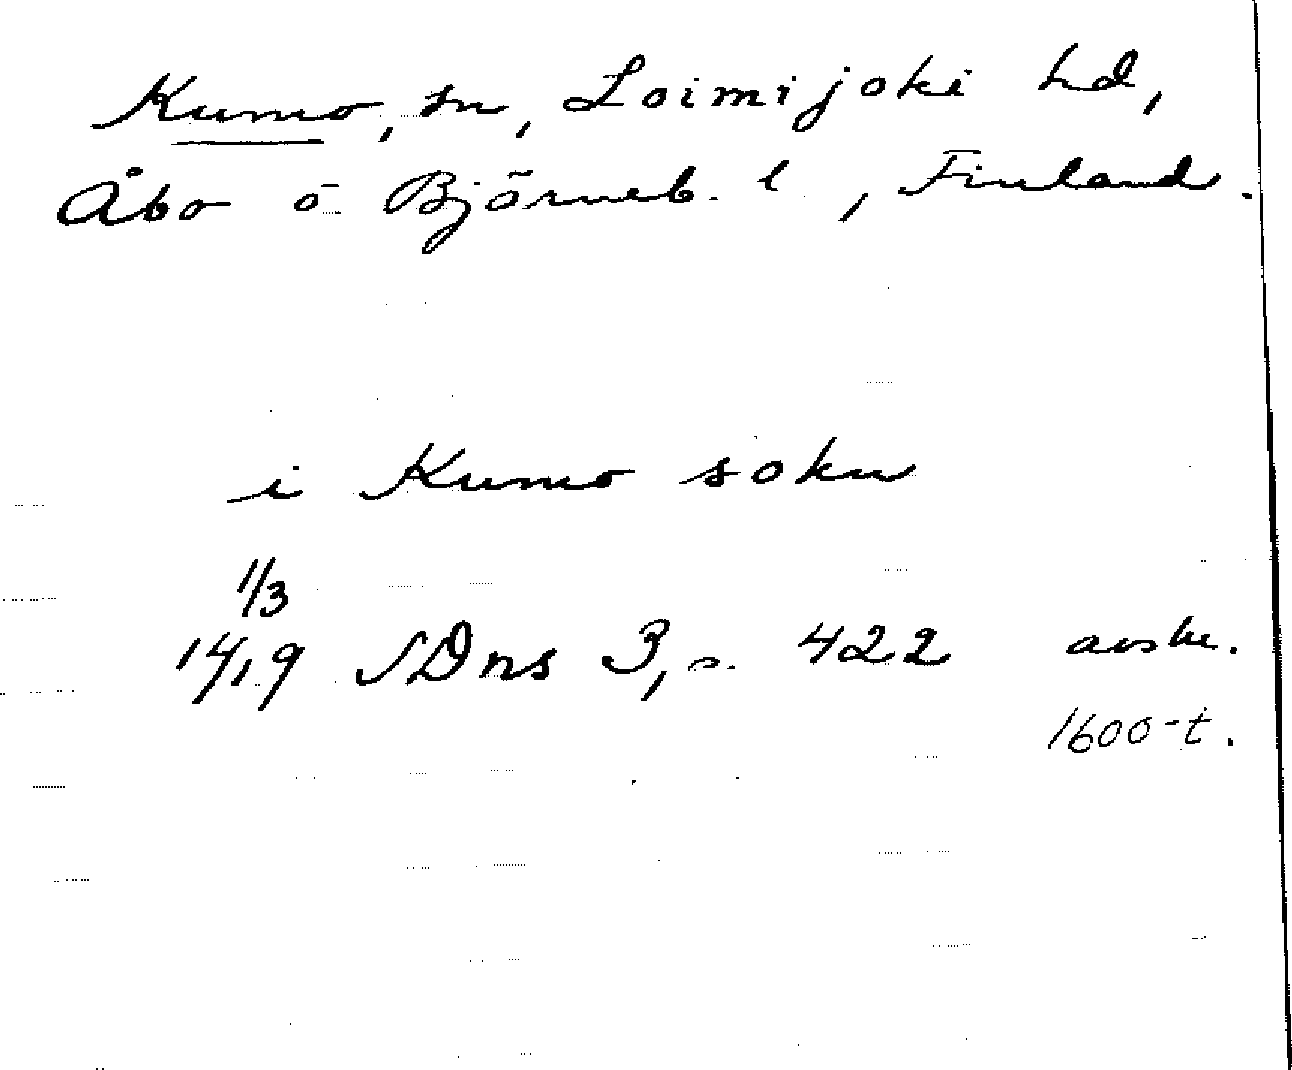 Kumo, sn, Loimijoki hd,
Åbo o Björneb. l, Finland.
i Kumo sokn
1/3
1419 SDns 3, s. 422 avskr.
1600-t.